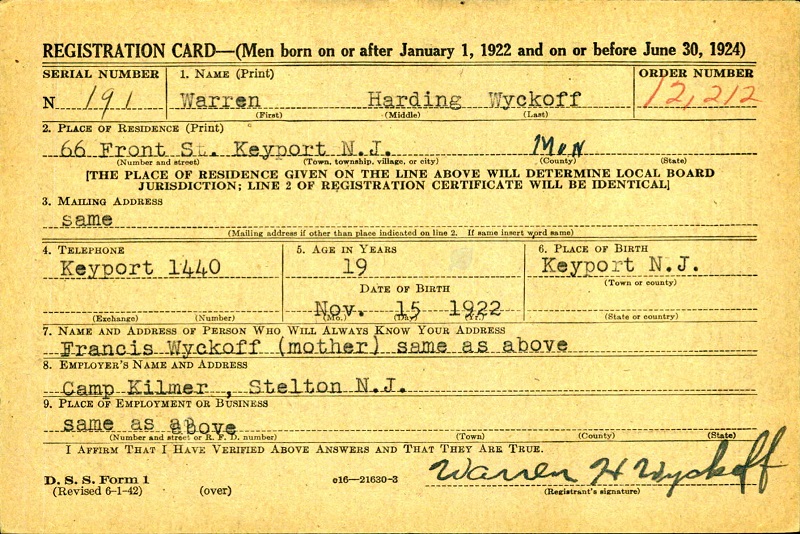 REGISTRATION CARD—(Men born on or after January 1, 1922 and on or before June 30, 1924)
SERIAL NUMBER 1. NAME (Print) ORDER NUMBER
N 191 Warren Harding Wyckoff 12,212
(First) (Middle) (Last)
2. PLACE OF RESIDENCE (Print)
66 Front St. Keyport N.J. Mon
(Number and street) (Town, township, village, or city) (County) (State)
[THE PLACE OF RESIDENCE GIVEN ON THE LINE ABOVE WILL DETERMINE LOCAL BOARD
JURISDICTION; LINE 2 OF REGISTRATION CERTIFICATE WILL BE IDENTICAL]
3. MAILING ADDRESS
same
(Mailing address if other than place indicated on line 2. If same insert word same)
4. TELEPHONE 5. AGE IN YEARS 6. PLACE OF BIRTH
Keyport 1440 19 Keyport N.J.
(Town or county)
DATE OF BIRTH
Nov. 15 1922
(Exchange) (Number) (Mo.) (Day) (Yr.) (State or country)
7. NAME AND ADDRESS OF PERSON WHO WILL ALWAYS KNOW YOUR ADDRESS
Francis Wyckoff (mother) same as above
8. EMPLOYER'S NAME AND ADDRESS
Camp Kilmer , Stelton N.J.
9. PLACE OF EMPLOYMENT OR BUSINESS
same as above
(Number and street or R. F. D. number) (Town) (County) (State)
I AFFIRM THAT I HAVE VERIFIED ABOVE ANSWERS AND THAT THEY ARE TRUE.
D. S. S. Form 1 Warren H Wyckoff
(Revised 6-1-42) (over) c16—21630-3 (Registrant's signature)